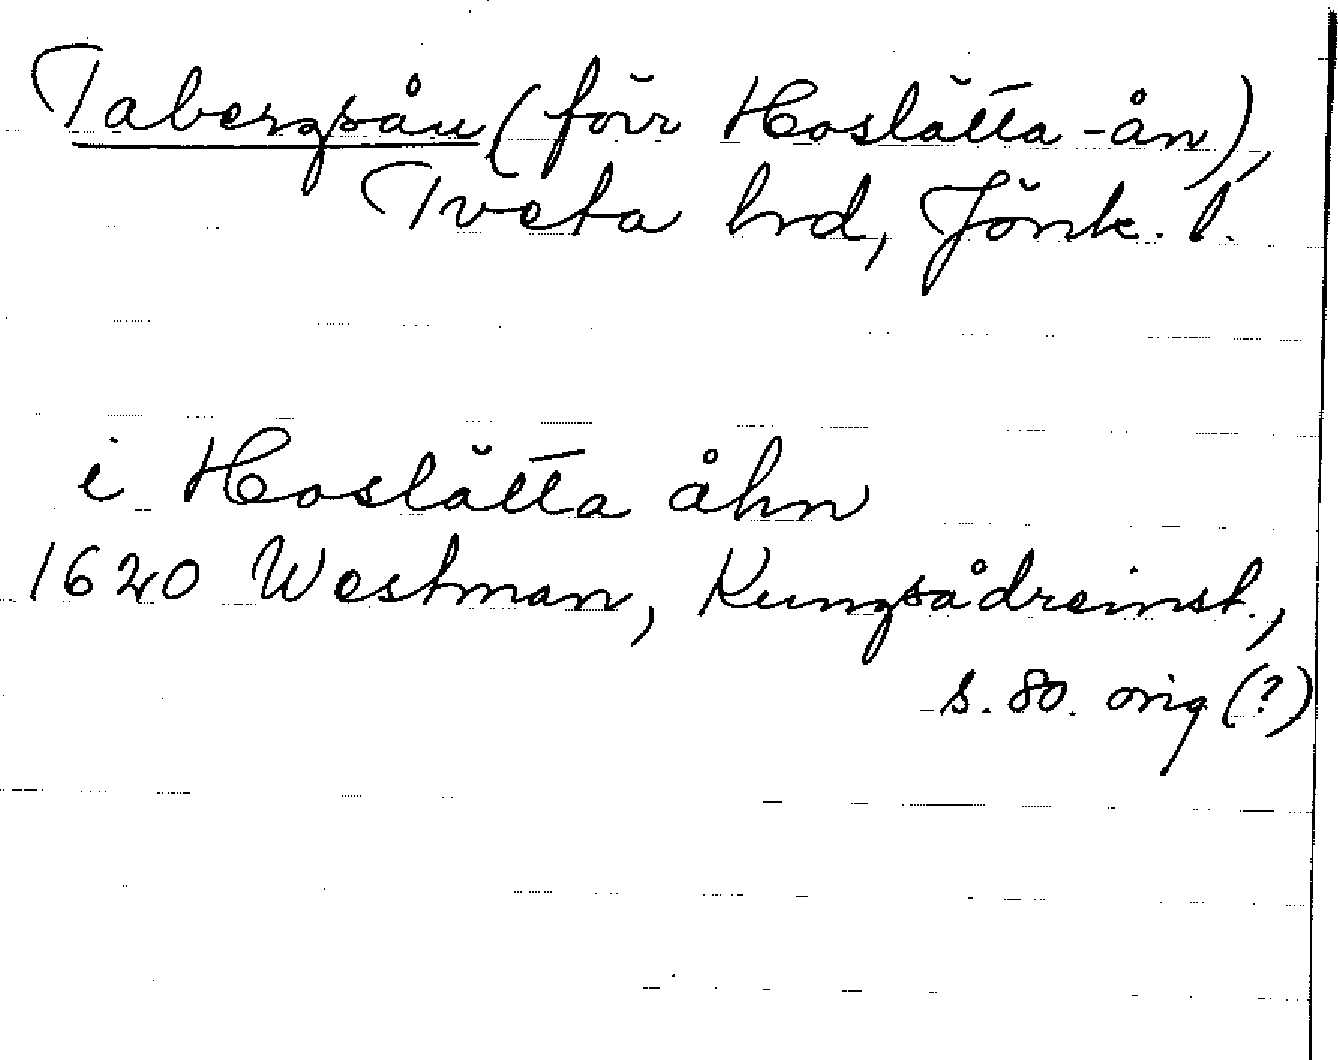 Tabergsån (förr Hoslätta-ån),
Tveta hrd, Jönk. l.
i Hoslätta åhn
1620 Westman, Kungsådreinst.,
s. 80. orig (?)